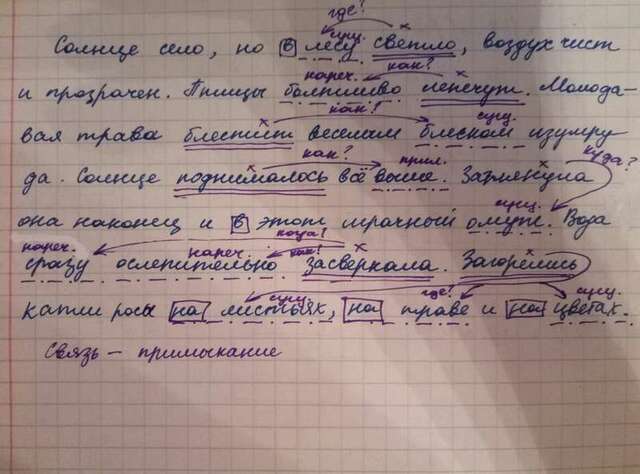 где?
сущ.
Солнце село, но в лесу светло, воздух чист
нареч. как?
и прозрачен. Птицы болтливо лепечут. Молода-
как? сущ.
вая трава блестит веселым блеском изумру
как? прил. куда?
да. Солнце поднималось всё выше. Заглянула
сущ.
она наконец и в этот мрачный омут. Вода
нареч. нареч. когда? как?
сразу ослепительно засверкала. Загорелись
сущ. где? сущ.
капли росы на листьях, на траве и на цветах.
Связь – примыкание